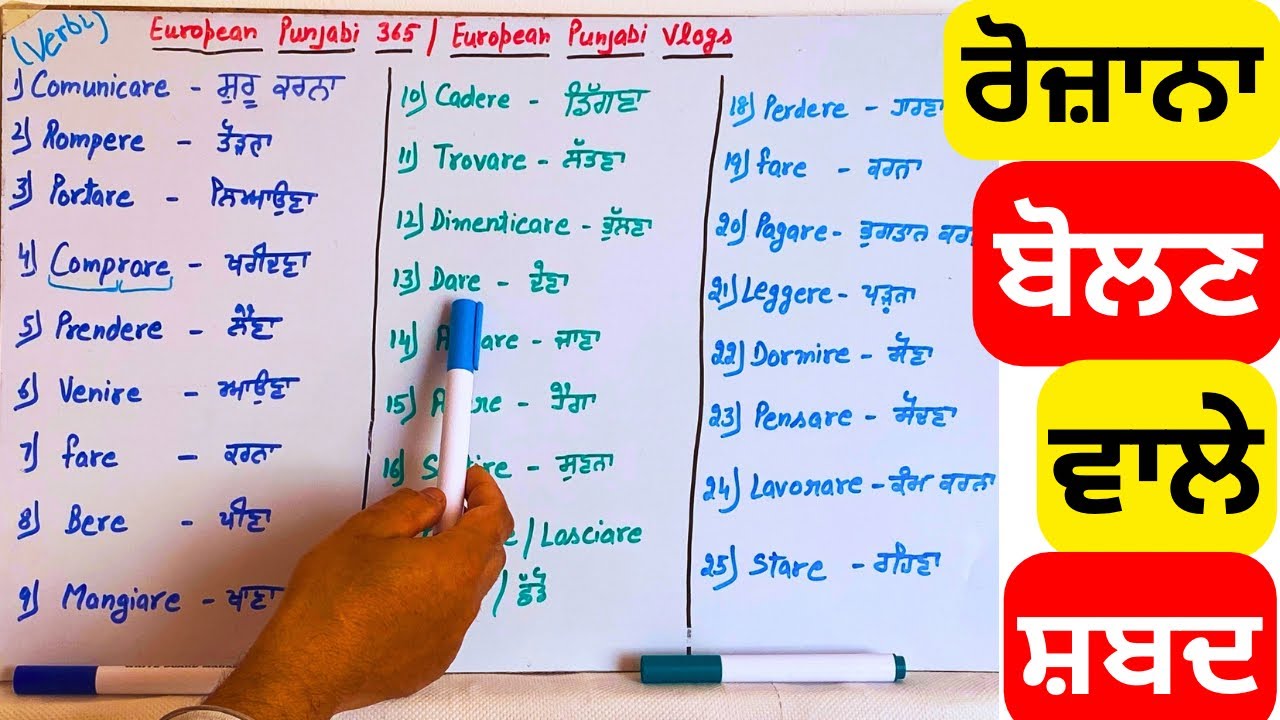 (Verbs)
European Punjabi 365 / European Punjabi Vlogs
1) Comunicare - ਸ਼ੁਰੂ ਕਰਨਾ
2) Rompere - ਤੋੜਨਾ
3) Portare - ਲਿਆਉਣਾ
4) Comprare - ਖਰੀਦਣਾ
5) Prendere - ਲੈਣਾ
6) Venire - ਆਉਣਾ
7) fare - ਕਰਨਾ
8) Bere - ਪੀਣਾ
9) Mangiare - ਖਾਣਾ
10) Cadere - ਡਿੱਗਣਾ
11) Trovare - ਲੱਭਣਾ
12) Dimenticare - ਭੁੱਲਣਾ
13) Dare - ਦੇਣਾ
14) - ਜਾਣਾ
15) - ਹੈਗਾ
16) - ਸੁਣਨਾ
/ Lasciare
/ ਛੱਡੋ
18) Perdere - ਹਾਰਣਾ
19) fare - ਕਰਨਾ
20) Pagare - ਭੁਗਤਾਨ
21) Leggere - ਪੜ੍ਹਨਾ
22) Dormire - ਸੌਣਾ
23) Pensare - ਸੋਚਣਾ
24) Lavorare - ਕੰਮ ਕਰਨਾ
25) Stare - ਰਹਿਣਾ
ਰੋਜ਼ਾਨਾ
ਬੋਲਣ
ਵਾਲੇ
ਸ਼ਬਦ